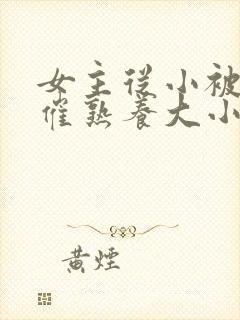 女主從小被
催熟養大小
黃煙